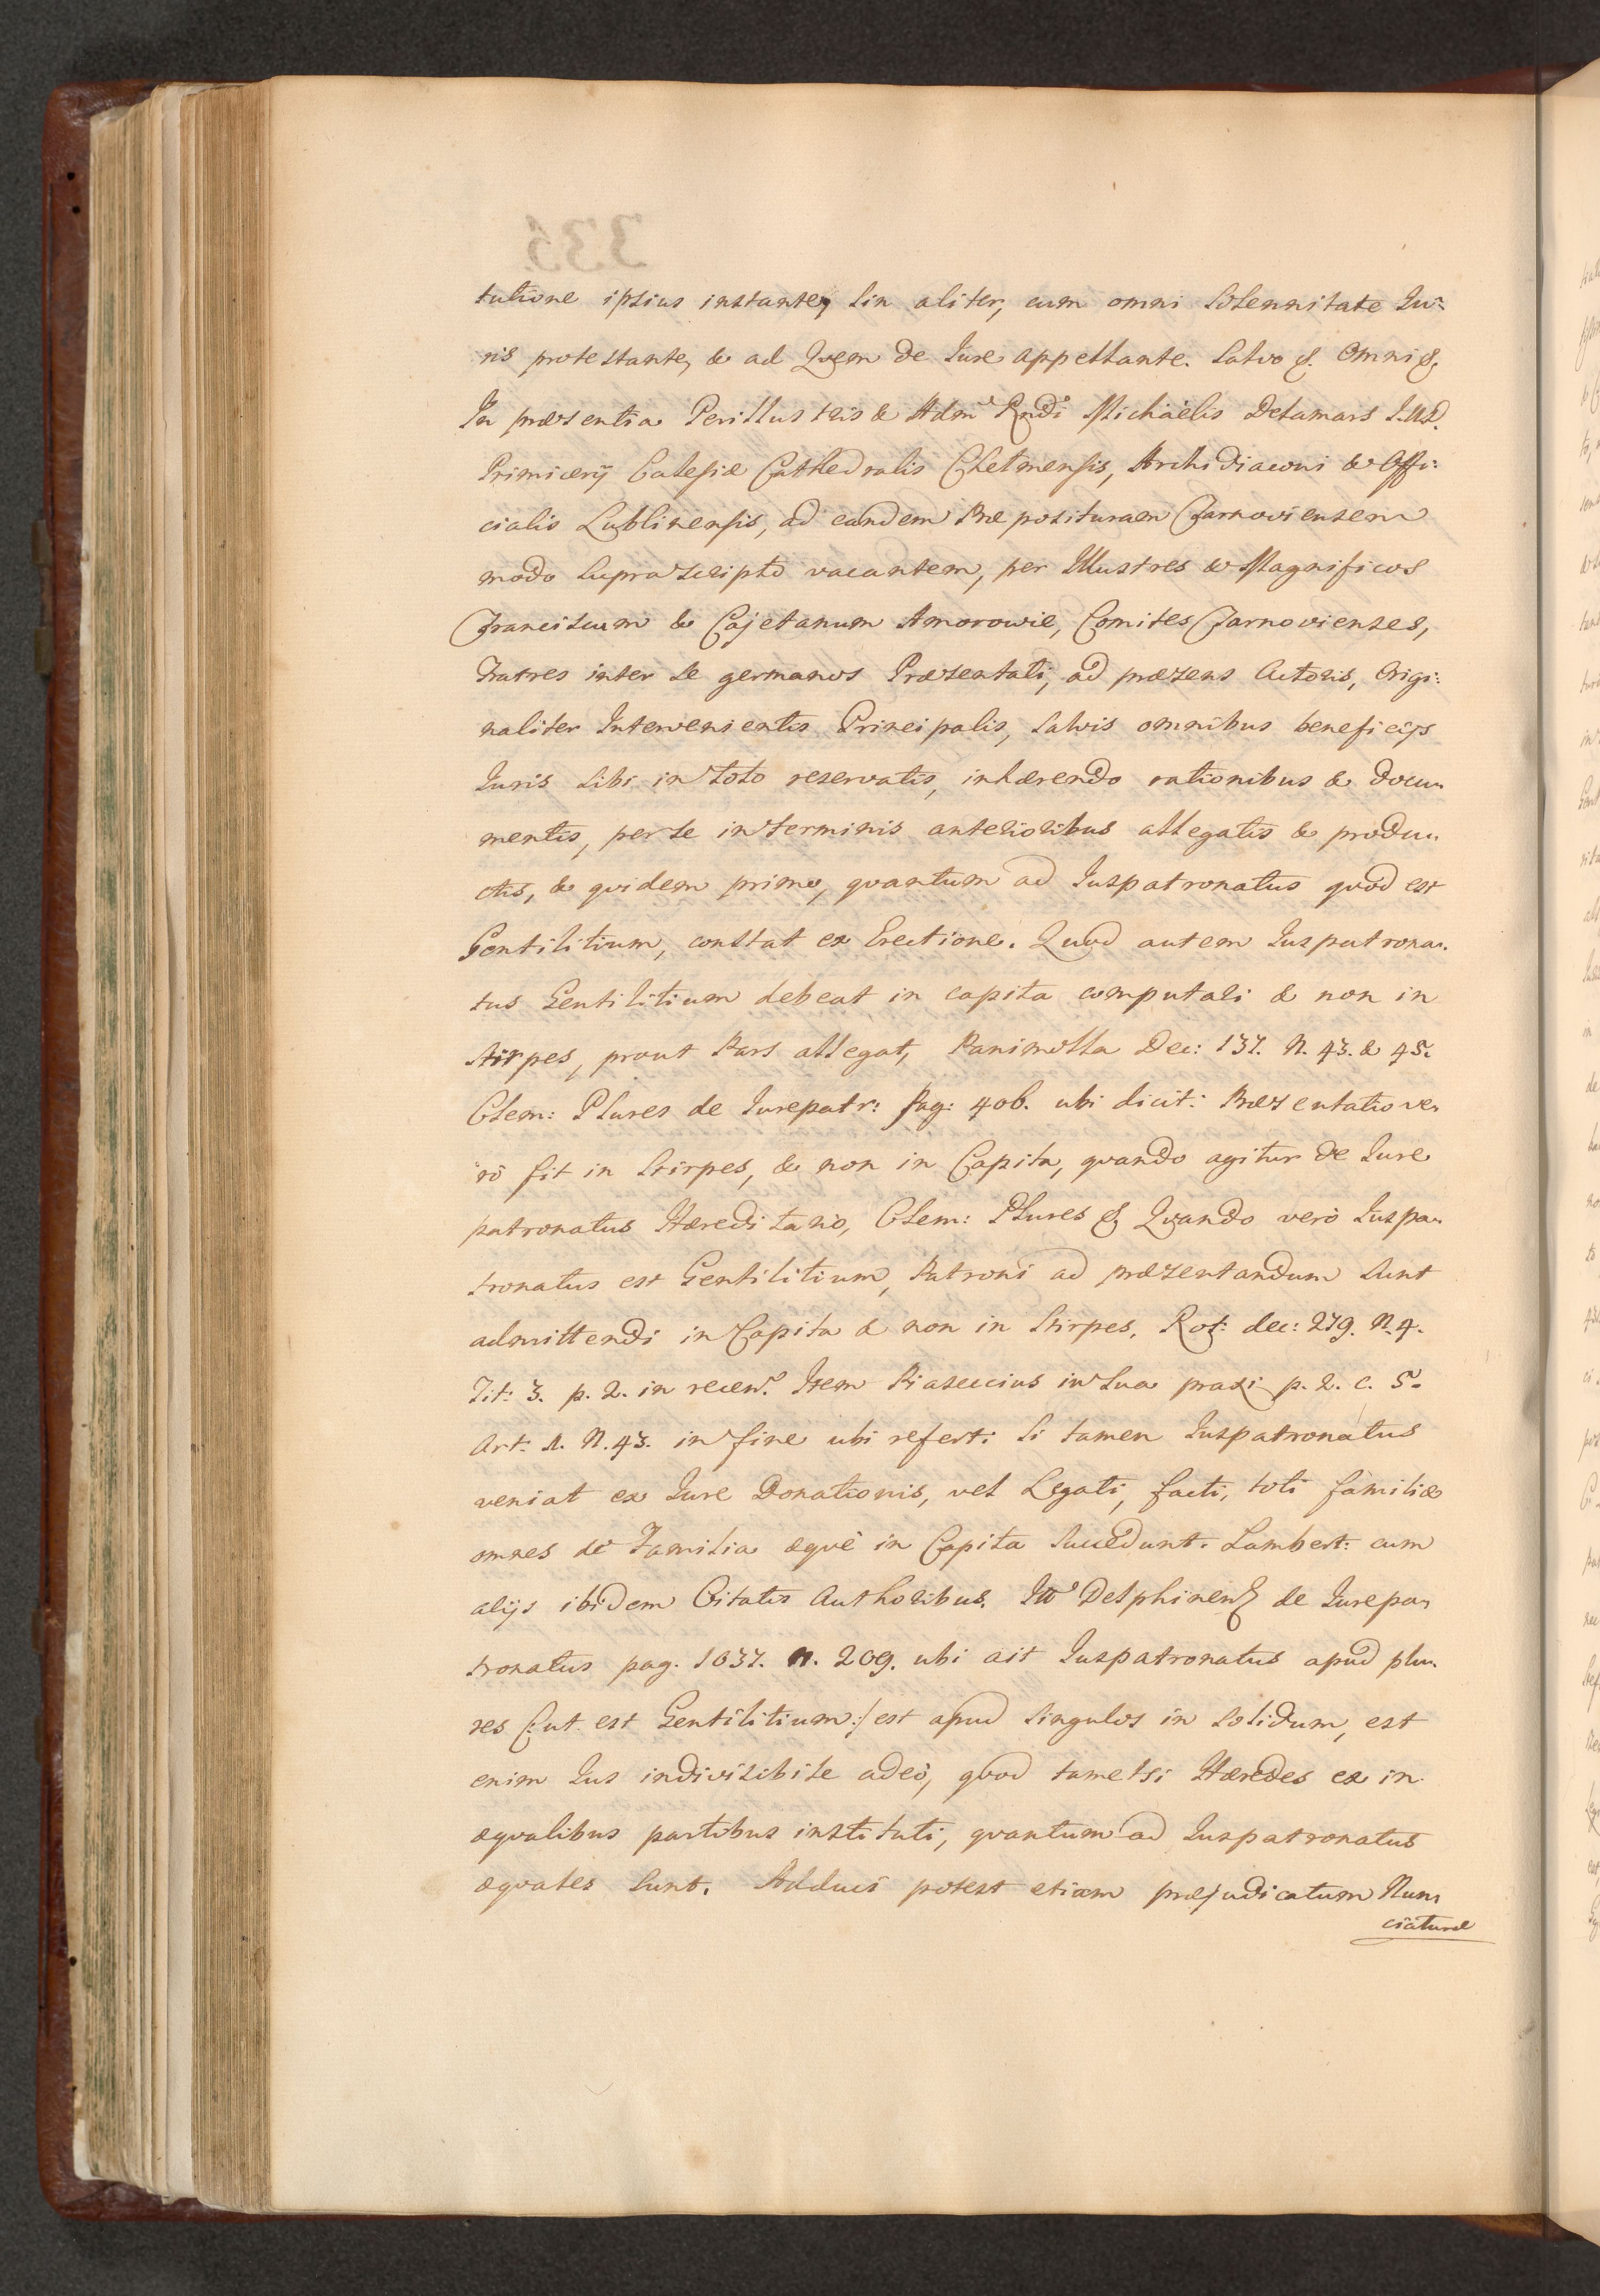 tutione ipsius instante, sin aliter, cum omni Solennitate Iu=
ris protestante, & ad Quem de Iure appellante. Salvo &. Omni &.
In præsentia Perillustris & Adm Rndi Michaëlis Delamars I.U.D.
Primicerij Ecclesiæ Cathedralis Chelmensis, Archidiaconi & Offi:
cialis Lublinensis, ad eandem Præposituram Tarnoviensem
modo suprascripto vacantem, per Illustres & Magnificos
Franciscum & Cajetanum Amorowie, Comites Tarnovienses,
Fratres inter se germanos Præsentati, ad præsens Actoris, Origi:
naliter Intervenientis Principalis, Salvis omnibus beneficijs
Iuris sibi in toto reservatis, inhærendo rationibus & docu„
mentis, per se in terminis anterioribus allegatis & produ„
ctis, & quidem primo, quantum ad Iuspatronatus quod est
Gentilitium, constat ex Erectione. Quod autem Iuspatrona„
tus Gentilitium debeat in capita computari & non in
stirpes, prout Pars allegat, Panimolla Dec: 137. N. 43. & 45.
Clem: Plures de Iurepatr: pag: 406. ubi dicit: Præsentatio ve„
rò fit in Stirpes, & non in Capita, quando agitur de Iure
patronatus Hæreditario, Clem: Plures & Quando verò Iuspa„
tronatus est Gentilitium, Patroni ad præsentandum sunt
admittendi in Capita & non in Stirpes. Rot: dec: 279. N. 4.
Tit: 3. p. 2. in recen. Item Piaseccius in sua praxi p. 2. c. 5.
Art: 1. N. 43. in fine ubi refert: si tamen Iuspatronatus
veniat ex Iure Donationis, vel Legati, facti, toti familiæ
omnes de Familia æquè in Capita succedunt. Lambert: cum
alijs ibidem Citatis Authoribus. Itò Delphinen de Iurepa„
tronatus pag. 1037. n. 209. ubi ait Iuspatronatus apud plu„
res (:ut est Gentilitium:) est apud singulos in solidum, est
enim Ius indivisibile adeò, quod tametsi Hæredes ex in
æqualibus partibus instituti, quantum ad Iuspatronatus
æquales sunt. Adduci potest etiam præjudicatum Nun„
ciaturæ